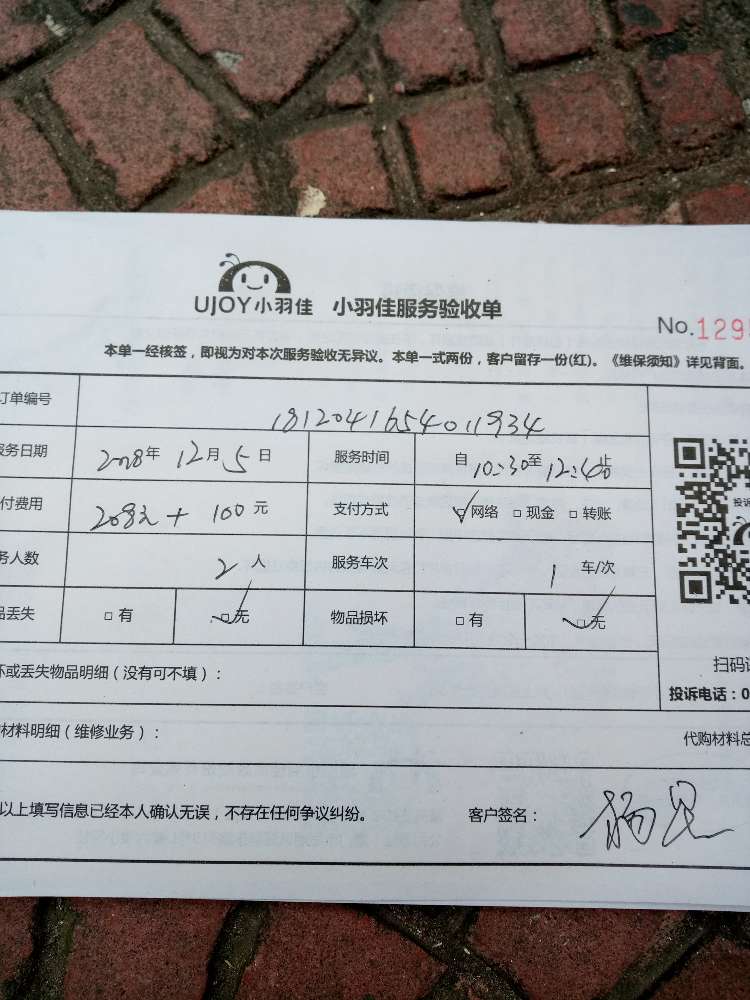 UJOY小羽佳 小羽佳服务验收单
No.129
本单一经核签，即视为对本次服务验收无异议。本单一式两份，客户留存一份(红)。《维保须知》详见背面。
订单编号 1812041654011934
务日期 2018年 12月 5日 服务时间 自 10:30至 12:40止
付费用 208元 + 100元 支付方式 ☑网络 □现金 □转账
务人数 2人 服务车次 1车/次
品丢失 □有 ☑无 物品损坏 □有 ☑无
坏或丢失物品明细（没有可不填）：
扫码
投诉电话：0
材料明细（维修业务）： 代购材料总
以上填写信息已经本人确认无误，不存在任何争议纠纷。 客户签名：